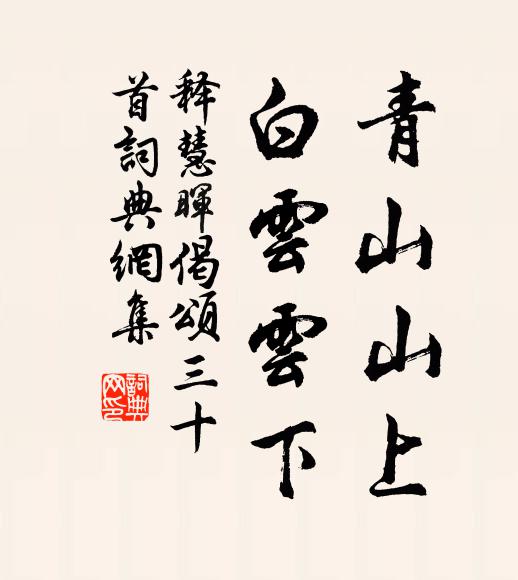 青山山上
白雲雲下
釋慧暉偈頌三十
首詞典網集
詞典
网印